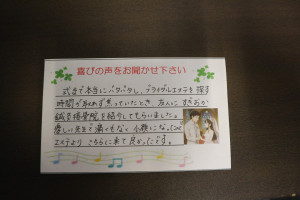 喜びの声をお聞かせ下さい
式まで本当にバタバタし、ブライダルエステを探す
時間が取れず焦っていたとき、友人にすだあか
鍼灸接骨院を紹介してもらいました。
優しい先生で痛くもなく小顔になって
エステより こちらに来て良かったです。